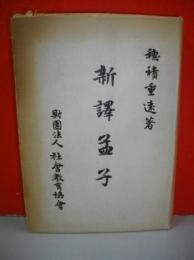 穂積重遠著
新譯孟子
財團法人 社會教育協會